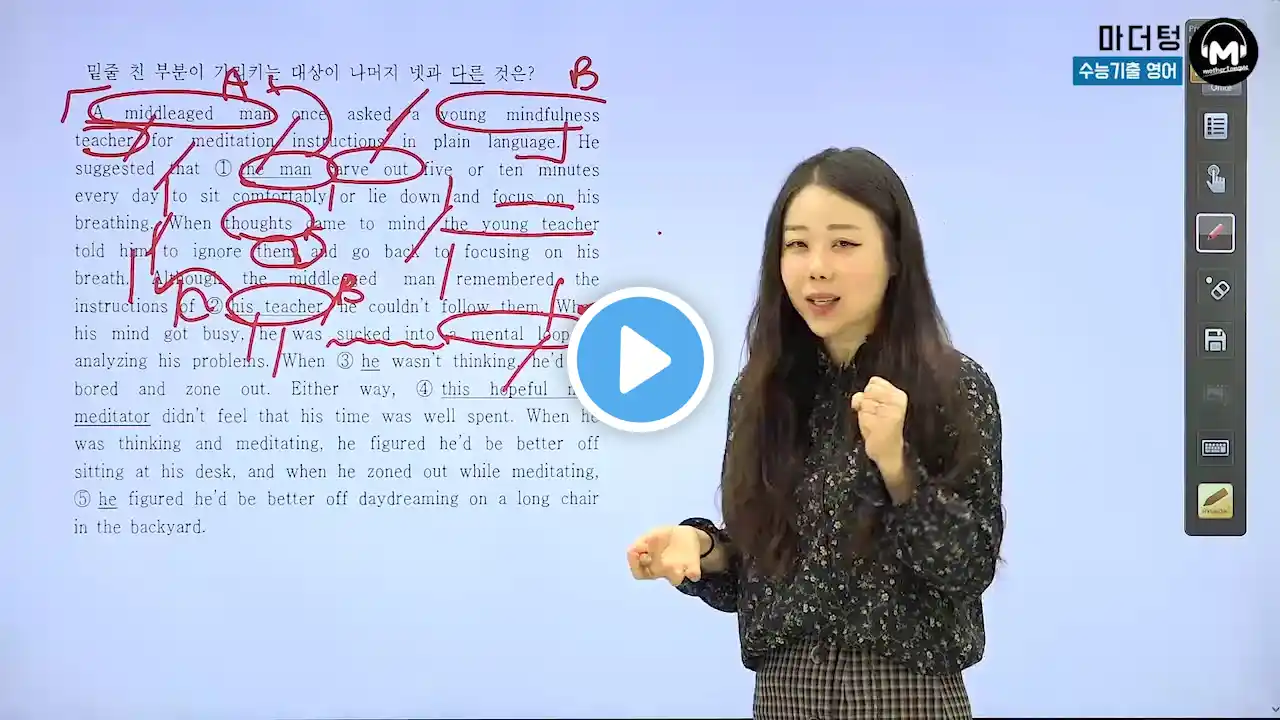 마더텅
수능기출 영어
M
mother tongue
밑줄 친 부분이 가리키는 대상이 나머지 넷과 다른 것은?
A
B
A middleaged man once asked a young mindfulness
teacher for meditation instructions in plain language. He
suggested that ① the man carve out five or ten minutes
every day to sit comfortably or lie down and focus on his
breathing. When thoughts came to mind, the young teacher
told him to ignore them and go back to focusing on his
breath. Although the middleaged man remembered the
instructions of ② his teacher, he couldn't follow them. When
B
his mind got busy, he was sucked into a mental loop
analyzing his problems. When ③ he wasn't thinking, he'd
bored and zone out. Either way, ④ this hopeful
meditator didn't feel that his time was well spent. When he
was thinking and meditating, he figured he'd be better off
sitting at his desk, and when he zoned out while meditating,
⑤ he figured he'd be better off daydreaming on a long chair
in the backyard.